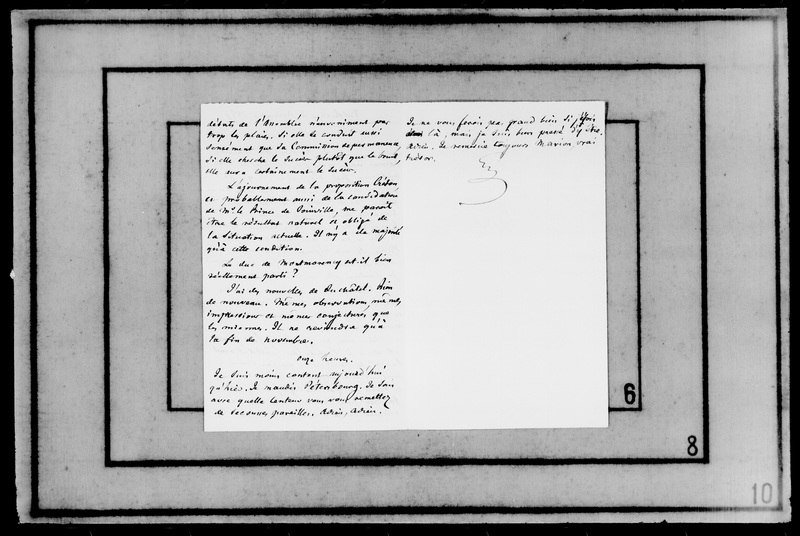 débats de l'Assemblée n'enveniment pas
trop les plaies. Si elle se conduit aussi
sensément que sa Commission de permanence,
si elle cherche le succès plutôt que le bruit,
elle aura certainement le succès.
L'ajournement de la proposition Créton
et probablement aussi de la candidature
de Mr. le Prince de Joinville, me paroit
être le résultat naturel et obligé de
la situation actuelle. Il n'y a de majorité
qu'à cette condition.
Le duc de Montmorency est-il bien
réellement parti ?
J'ai des nouvelles de Duchâtel. Rien
de nouveau. Mêmes observations, mêmes
impressions et mêmes conjectures que
les miennes. Il ne reviendra qu'à
la fin de novembre.
Onze heures.
Je suis moins content aujourd'hui
qu'hier. Je maudis Pétersbourg. Je sais
avec quelle lenteur vous vous remettez
de secousses pareilles. Adieu, adieu.
Je ne vous ferois pas grand bien si j'étois
là, mais je suis bien pressé d'y être.
Adieu. Je remercie toujours Marion, vrai
trésor.
6
8
10